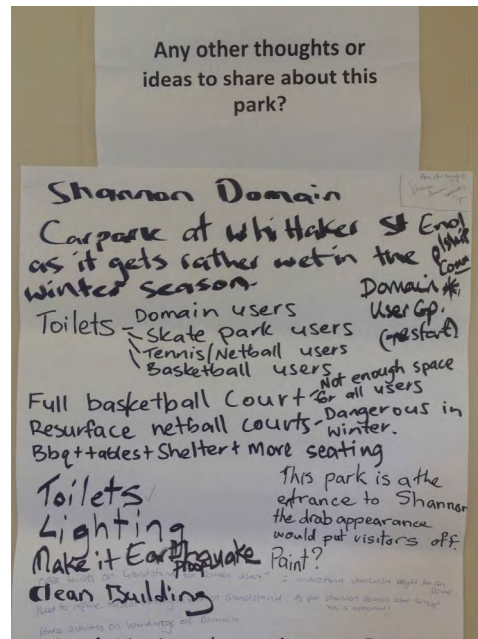 Any other thoughts or
ideas to share about this
park?
Shannon Domain
Carpark at Whittaker St End
as it gets rather wet in the
winter season
Domain
User Gp.
(restart)
Toilets - Domain users
- Skate park users
Tennis/Netball users
Basketball users
Full basketball Court - Not enough space
for all users
Resurface netball courts - Dangerous in
winter.
Bbq + tables + Shelter + More seating
Toilets
Lighting
Make it Earthquake
Proof
Clean Building
This park is a the
entrance to Shannon
the drab appearance
would put visitors off.
Paint?